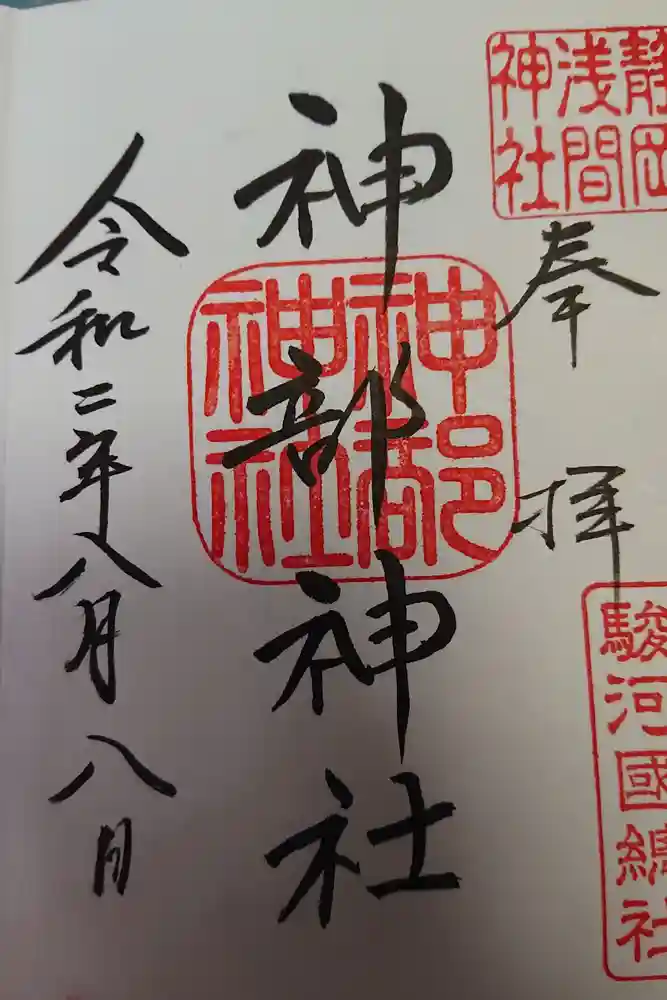 静岡
浅間
神社
奉拝
駿河國總社
神部神社
神部
神社
令和二年八月八日